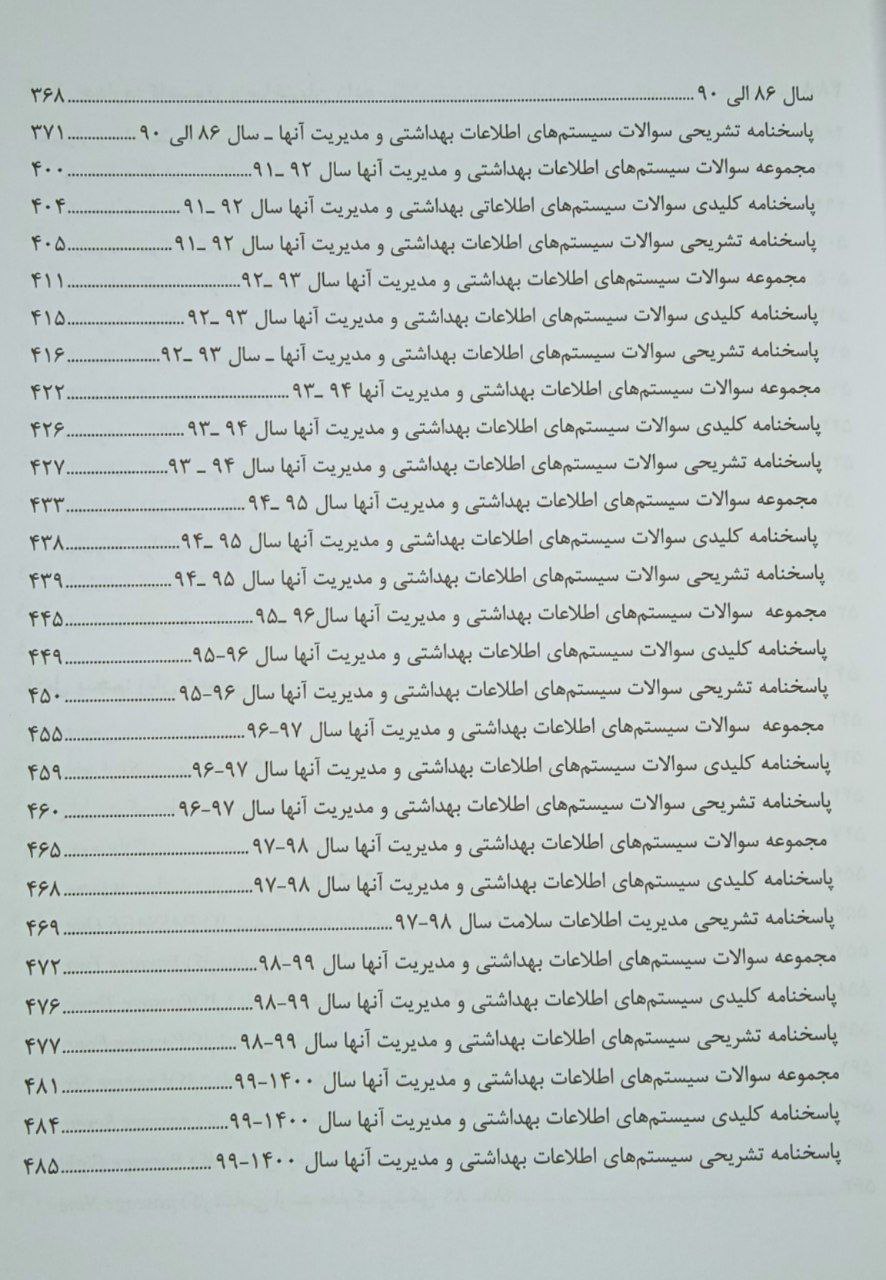 سال ۸۶ الی ۹۰ ........ ۳۶۸
پاسخنامه تشریحی سوالات سیستم‌های اطلاعات بهداشتی و مدیریت آنها ـ سال ۸۶ الی ۹۰ ........ ۳۷۱
مجموعه سوالات سیستم‌های اطلاعات بهداشتی و مدیریت آنها سال ۹۲ ـ۹۱ ........ ۴۰۰
پاسخنامه کلیدی سوالات سیستم‌های اطلاعاتی بهداشتی و مدیریت آنها سال ۹۲ ـ۹۱ ........ ۴۰۴
پاسخنامه تشریحی سوالات سیستم‌های اطلاعات بهداشتی و مدیریت آنها سال ۹۲ ـ۹۱ ........ ۴۰۵
مجموعه سوالات سیستم‌های اطلاعات بهداشتی و مدیریت آنها سال ۹۳ ـ۹۲ ........ ۴۱۱
پاسخنامه کلیدی سوالات سیستم‌های اطلاعات بهداشتی و مدیریت آنها سال ۹۳ ـ۹۲ ........ ۴۱۵
پاسخنامه تشریحی سوالات سیستم‌های اطلاعات بهداشتی و مدیریت آنها ـ سال ۹۳ ـ۹۲ ........ ۴۱۶
مجموعه سوالات سیستم‌های اطلاعات بهداشتی و مدیریت آنها ۹۴ ـ۹۳ ........ ۴۲۲
پاسخنامه کلیدی سوالات سیستم‌های اطلاعات بهداشتی و مدیریت آنها سال ۹۴ ـ۹۳ ........ ۴۲۶
پاسخنامه تشریحی سوالات سیستم‌های اطلاعات بهداشتی و مدیریت آنها سال ۹۴ ـ ۹۳ ........ ۴۲۷
مجموعه سوالات سیستم‌های اطلاعات بهداشتی و مدیریت آنها سال ۹۵ ـ۹۴ ........ ۴۳۳
پاسخنامه کلیدی سوالات سیستم‌های اطلاعات بهداشتی و مدیریت آنها سال ۹۵ ـ۹۴ ........ ۴۳۸
پاسخنامه تشریحی سوالات سیستم‌های اطلاعات بهداشتی و مدیریت آنها سال ۹۵ ـ۹۴ ........ ۴۳۹
مجموعه سوالات سیستم‌های اطلاعات بهداشتی و مدیریت آنها سال۹۶ ـ۹۵ ........ ۴۴۵
پاسخنامه کلیدی سوالات سیستم‌های اطلاعات بهداشتی و مدیریت آنها سال ۹۶-۹۵ ........ ۴۴۹
پاسخنامه تشریحی سوالات سیستم‌های اطلاعات بهداشتی و مدیریت آنها سال ۹۶-۹۵ ........ ۴۵۰
مجموعه سوالات سیستم‌های اطلاعات بهداشتی و مدیریت آنها سال ۹۷-۹۶ ........ ۴۵۵
پاسخنامه کلیدی سوالات سیستم‌های اطلاعات بهداشتی و مدیریت آنها سال ۹۷-۹۶ ........ ۴۵۹
پاسخنامه تشریحی سوالات سیستم‌های اطلاعات بهداشتی و مدیریت آنها سال ۹۷-۹۶ ........ ۴۶۰
مجموعه سوالات سیستم‌های اطلاعات بهداشتی و مدیریت آنها سال ۹۸-۹۷ ........ ۴۶۵
پاسخنامه کلیدی سیستم‌های اطلاعات بهداشتی و مدیریت آنها سال ۹۸-۹۷ ........ ۴۶۸
پاسخنامه تشریحی مدیریت اطلاعات سلامت سال ۹۸-۹۷ ........ ۴۶۹
مجموعه سوالات سیستم‌های اطلاعات بهداشتی و مدیریت آنها سال ۹۹-۹۸ ........ ۴۷۲
پاسخنامه کلیدی سیستم‌های اطلاعات بهداشتی و مدیریت آنها سال ۹۹-۹۸ ........ ۴۷۶
پاسخنامه تشریحی سیستم‌های اطلاعات بهداشتی و مدیریت آنها سال ۹۹-۹۸ ........ ۴۷۷
مجموعه سوالات سیستم‌های اطلاعات بهداشتی و مدیریت آنها سال ۱۴۰۰-۹۹ ........ ۴۸۱
پاسخنامه کلیدی سیستم‌های اطلاعات بهداشتی و مدیریت آنها سال ۱۴۰۰-۹۹ ........ ۴۸۴
پاسخنامه تشریحی سیستم‌های اطلاعات بهداشتی و مدیریت آنها سال ۱۴۰۰-۹۹ ........ ۴۸۵